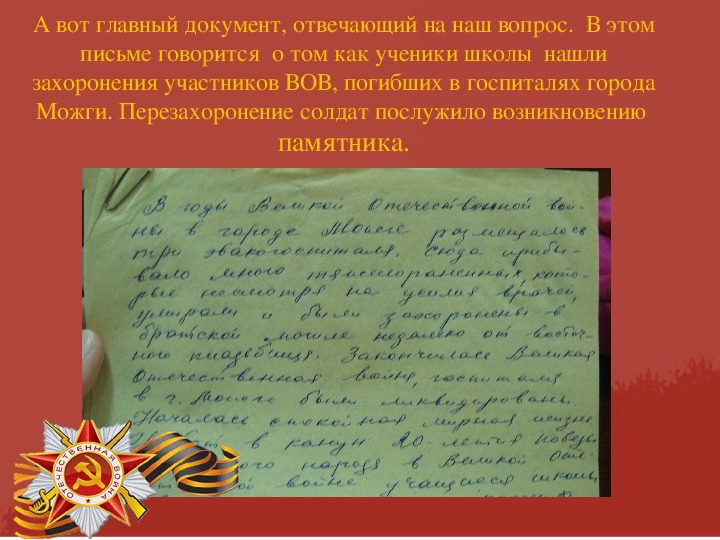 А вот главный документ, отвечающий на наш вопрос. В этом
письме говорится о том как ученики школы нашли
захоронения участников ВОВ, погибших в госпиталях города
Можги. Перезахоронение солдат послужило возникновению
памятника.
В годы Великой Отечественной вой-
ны в городе Можге размещалось
три эвакогоспиталя. Сюда прибы-
вало много тяжелораненных, кото-
рые несмотря на усилия врачей,
умирали и были захоронены в
братской могиле недалеко от восточ-
ного кладбища. Закончилась Великая
Отечественная война, госпиталя
в г. Можге были ликвидированы.
Началась спокойная мирная жизнь
в канун 20-летия Победы
народа в Великой Оте-
войне учащиеся школы
ОТЕЧЕСТВЕННАЯ ВОЙНА